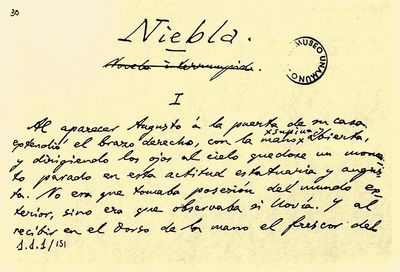 30
Niebla.
Novela interrumpida.
MUSEO UNAMUNO
I
Al aparecer Augusto á la puerta de su casa
estendió el brazo derecho, con la mano x abierta,
y dirigiendo los ojos al cielo quedose un momen
to parado en esta actitud estatuaria y augus-
ta. No era que tomaba posesión del mundo ex-
terior, sino era que observaba si llovía. Y al
recibir en el dorso de la mano el frescor del
1.1.1/151